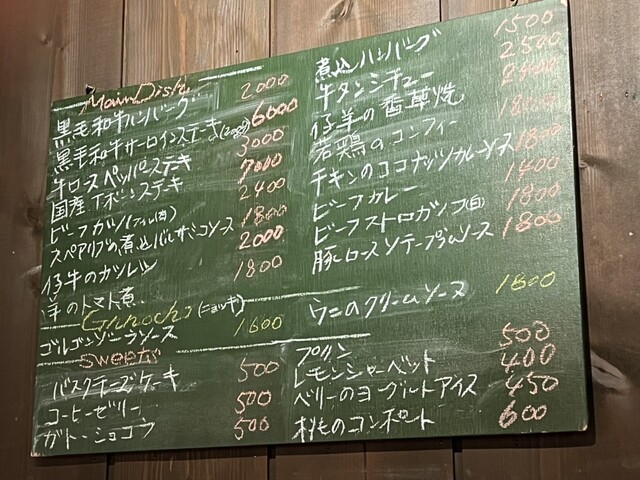 Main Dish
黒毛和牛ハンバーグ 2000
黒毛和牛サーロインステーキ(200g) 6000
牛ロースペッパステキ 3000
国産Tボーンステキ 7000
ビーフカツ(フィレ肉) 2400
スペアリブの煮込バルサミコソース 1800
仔牛のカツレツ 2000
羊のトマト煮 1800
煮込ハンバーグ 1500
牛タンシチュー 2500
仔羊の香草焼
若鶏のコンフィー 1800
チキンのココナッツカレーソース 1800
ビーフカレー 1400
ビーフストロガノフ(白) 1800
豚ロースソテープラムソース 1800
(ニョッキ)
ゴルゴンゾーラソース 1600
ウニのクリームソース 1800
sweets
バスクチーズケーキ 500
コーヒーゼリー 500
ガトーショコラ 500
プリン 500
レモンシャーベット 400
ベリーのヨーグルトアイス 450
桃のコンポート 600